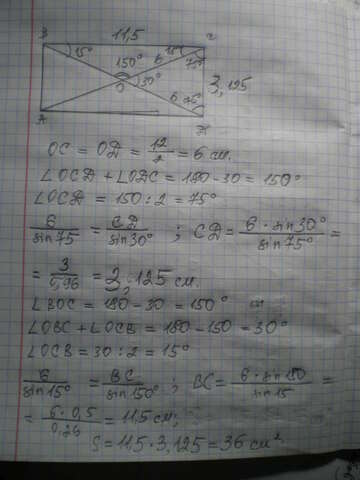 B 11,5 C
15° 15°
150° 6 75°
O 30° 3,125
6 75°
A D
OC = OD = 12/2 = 6 см.
∠OCD + ∠ODC = 180 - 30 = 150°
∠OCD = 150 : 2 = 75°
6/sin75 = CD/sin30° ; CD = 6 · sin30°/sin75° =
= 3/0,96 = 3,125 см.
∠BOC = 180 - 30 = 150°
∠OBC + ∠OCB = 180 - 150 = 30°
∠OCB = 30 : 2 = 15°
6/sin15° = BC/sin150° ; BC = 6 · sin150/sin15 =
= 6 · 0,5/0,26 = 11,5 см;
S = 11,5 · 3,125 = 36 см²